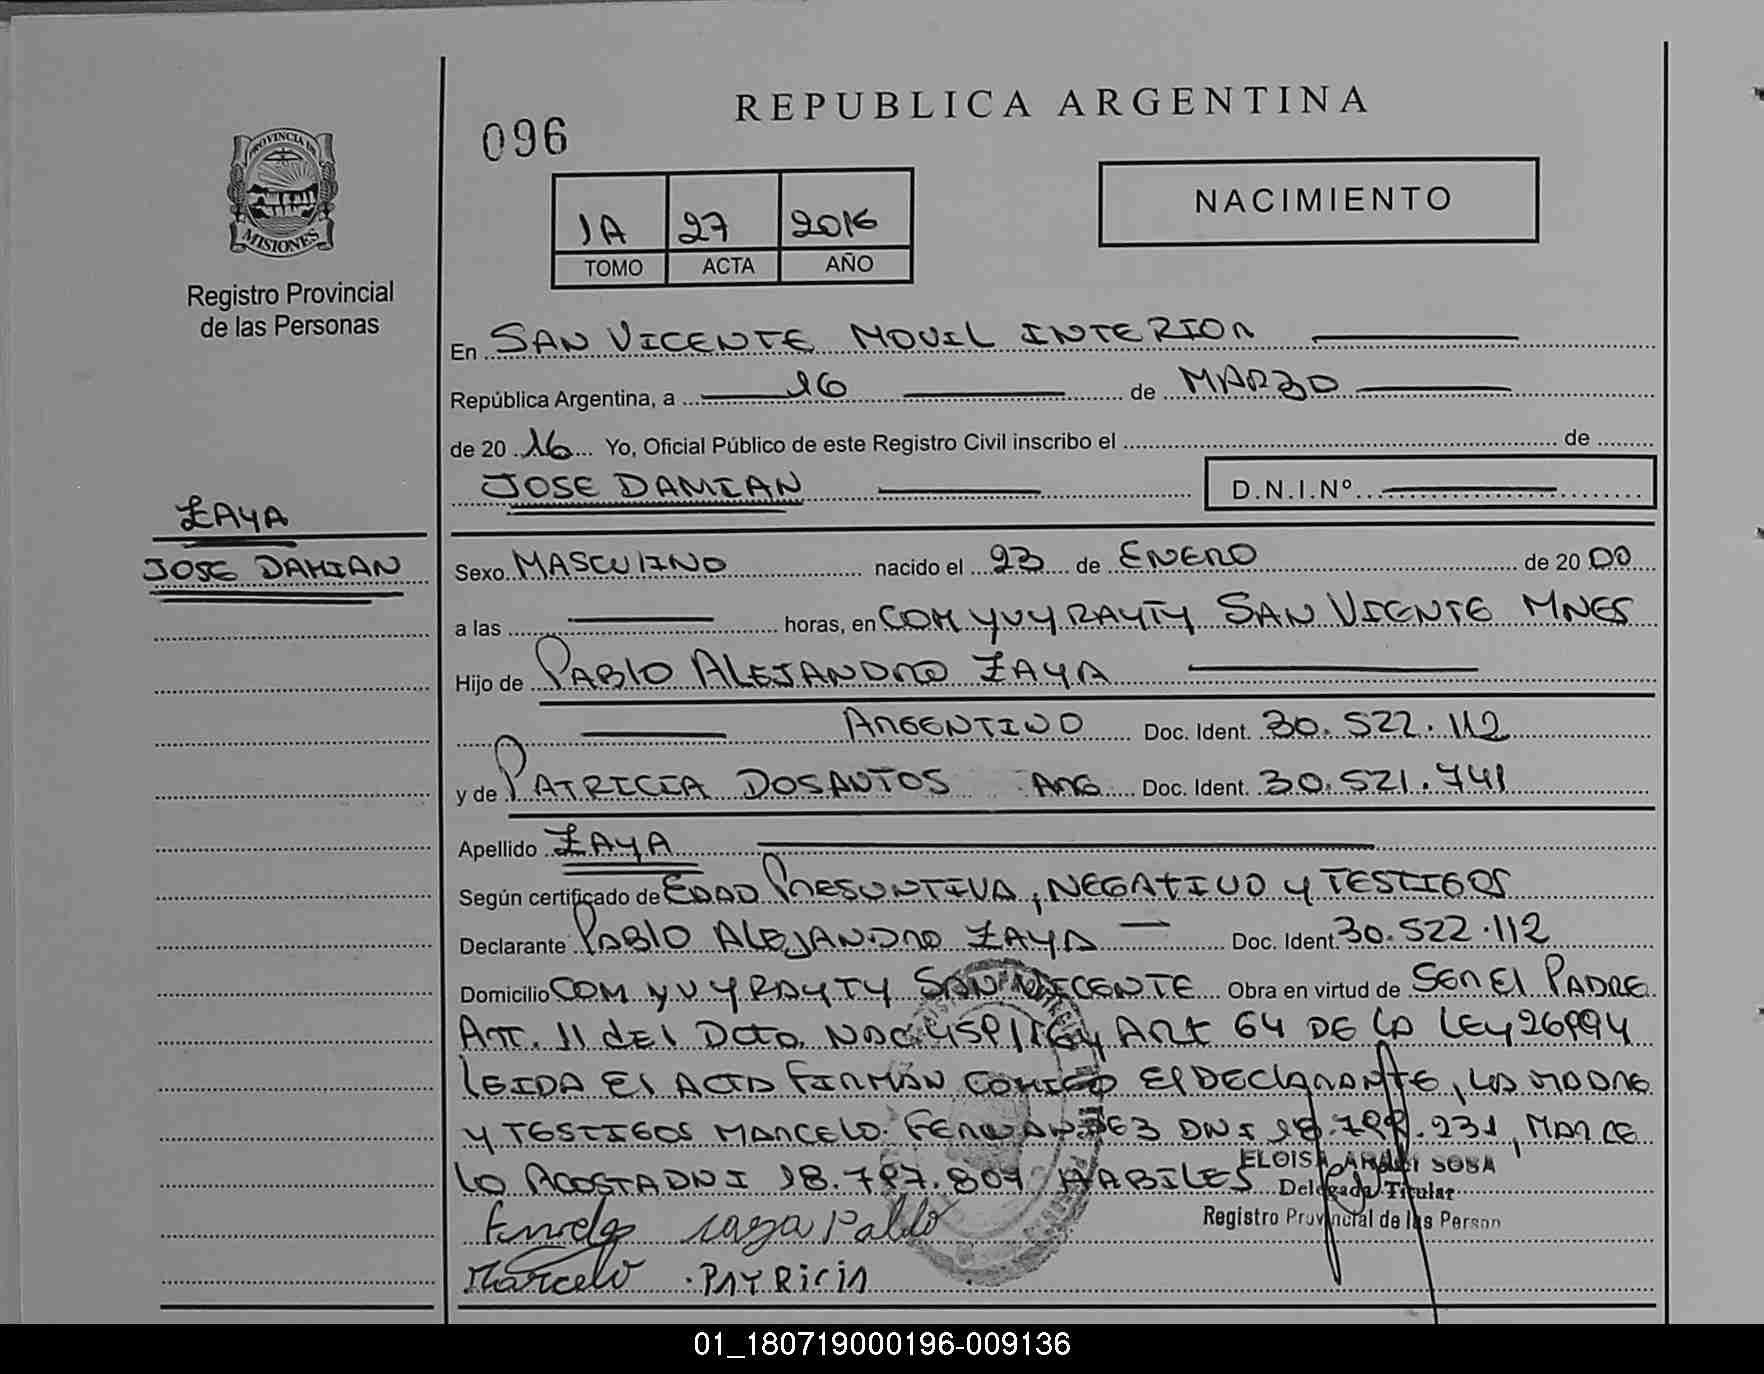 REPUBLICA ARGENTINA
096
PROVINCIA DE
MISIONES
Registro Provincial
de las Personas
1A 27 2016
TOMO ACTA AÑO
NACIMIENTO
En SAN VICENTE MOVIL INTERIOR
República Argentina, a 16 de MARZO
de 20 16 Yo, Oficial Público de este Registro Civil inscribo el de
JOSE DAMIAN D.N.I.Nº
ZAYA
JOSE DAMIAN
Sexo MASCULINO nacido el 23 de ENERO de 20 00
a las horas, en COM YVY RAYTY SAN VICENTE MNES
Hijo de PABLO ALEJANDRO ZAYA
ARGENTINO Doc. Ident. 30.522.112
y de PATRICIA DOSANTOS ARG Doc. Ident. 30.521.741
Apellido ZAYA
Según certificado de EDAD PRESUNTIVA, NEGATIVO Y TESTIGOS
Declarante PABLO ALEJANDRO ZAYA Doc. Ident. 30.522.112
Domicilio COM YVY RAYTY SAN VICENTE Obra en virtud de SER EL PADRE
ART. 11 DEL DCTO. NAC. Y ART 64 DE LA LEY 26994
LEIDA EL ACTA FIRMAN COMIGO El DECLARANTE, LA MADRE
Y TESTIGOS MARCELO FERNANDEZ DNI .231, MARCE
LO ACOSTA DNI 18.787.807 HABILES
ELOISA SOSA
Delegada Titular
Registro Provincial de las Person
zaya Pablo
Marcelo PATRICIA
01_180719000196-009136